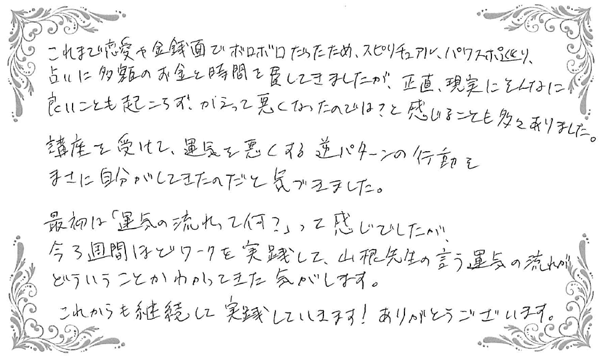 これまで恋愛や金銭面でボロボロだったため、スピリチュアル、パワスポ巡り、
占いに多額のお金と時間を費してきましたが、正直、現実にそんなに
良いことも起こらず、かえって悪くなったのでは?と感じることも多々ありました。
講座を受けて、運気を悪くする逆パターンの行動を
まさに自分がしてきたのだと気づきました。
最初は「運気の流れって何?」って感じでしたが、
今3週間ほどワークを実践して、山根先生の言う運気の流れが
どういうことかわかってきた気がします。
これからも継続して実践していきます!ありがとうございます。